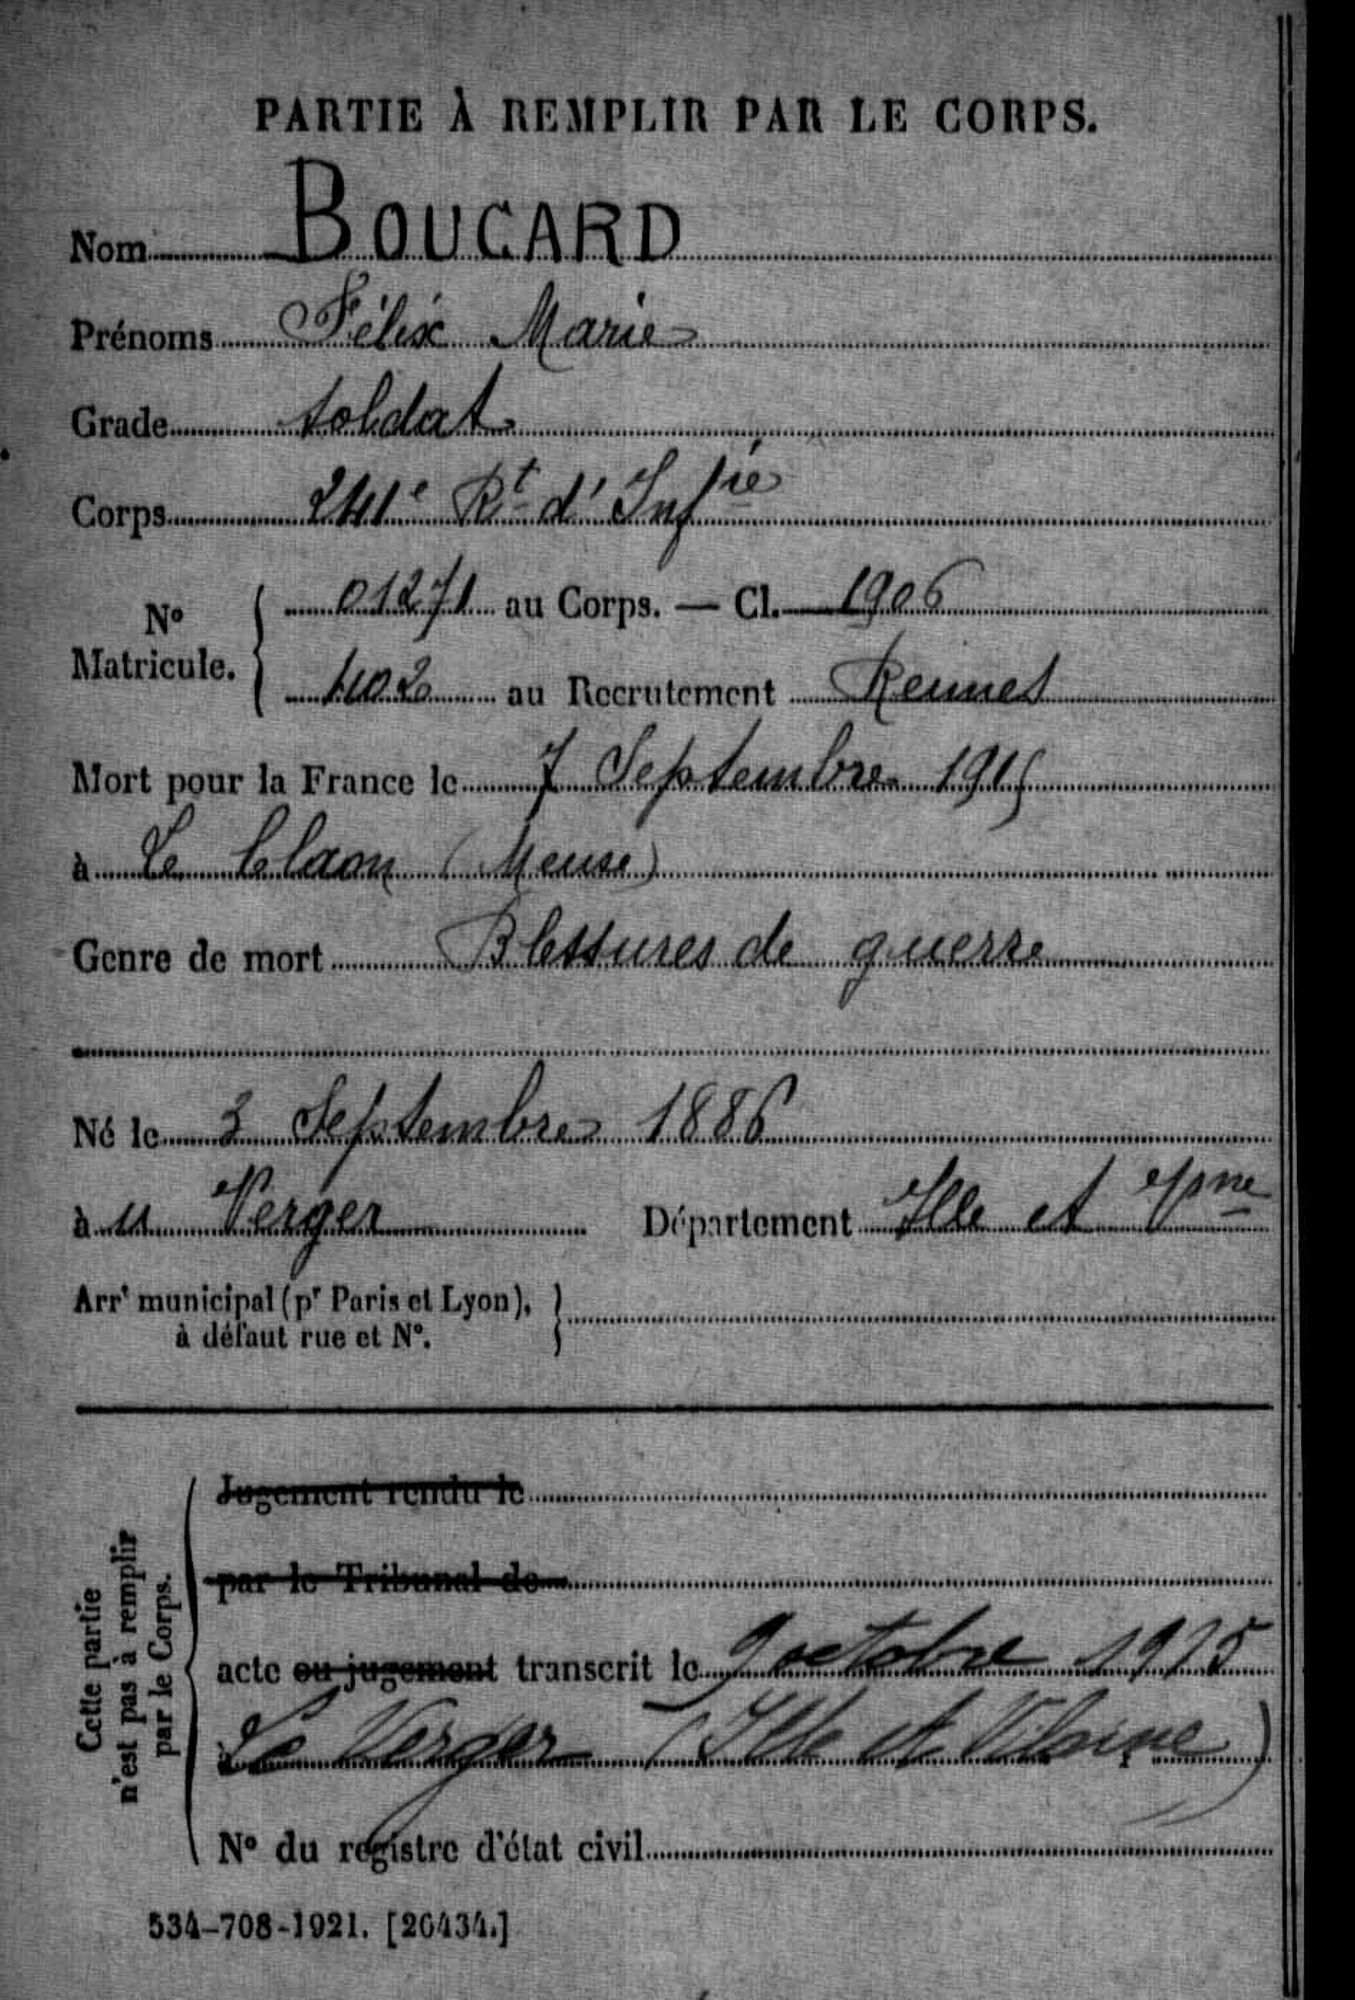 PARTIE À REMPLIR PAR LE CORPS.
Nom BOUCARD
Prénoms Félix Marie
Grade soldat
Corps 241e Rt d'Infie
No Matricule. 01271 au Corps. — Cl. 1906
1402 au Recrutement Rennes
Mort pour la France le 7 Septembre 1915
à Le Claon (Meuse)
Genre de mort Blessures de guerre
Né le 3 Septembre 1886
à Verger Département Ille et Vne
Arrt municipal (pr Paris et Lyon),
à défaut rue et No.
Cette partie
n'est pas à remplir
par le Corps.
Jugement rendu le
par le Tribunal de
acte ou jugement transcrit le 9 octobre 1915
à Le Verger (Ille et Vilaine)
No du registre d'état civil
534-708-1921. [26434.]